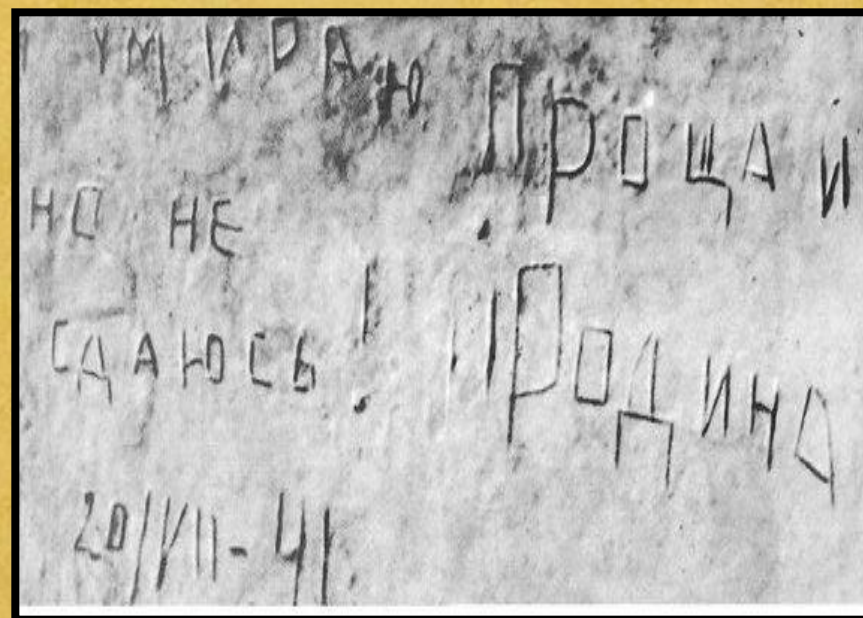 УМИРАЮ
НО НЕ
СДАЮСЬ!
ПРОЩАЙ
РОДИНА
20/VII-41